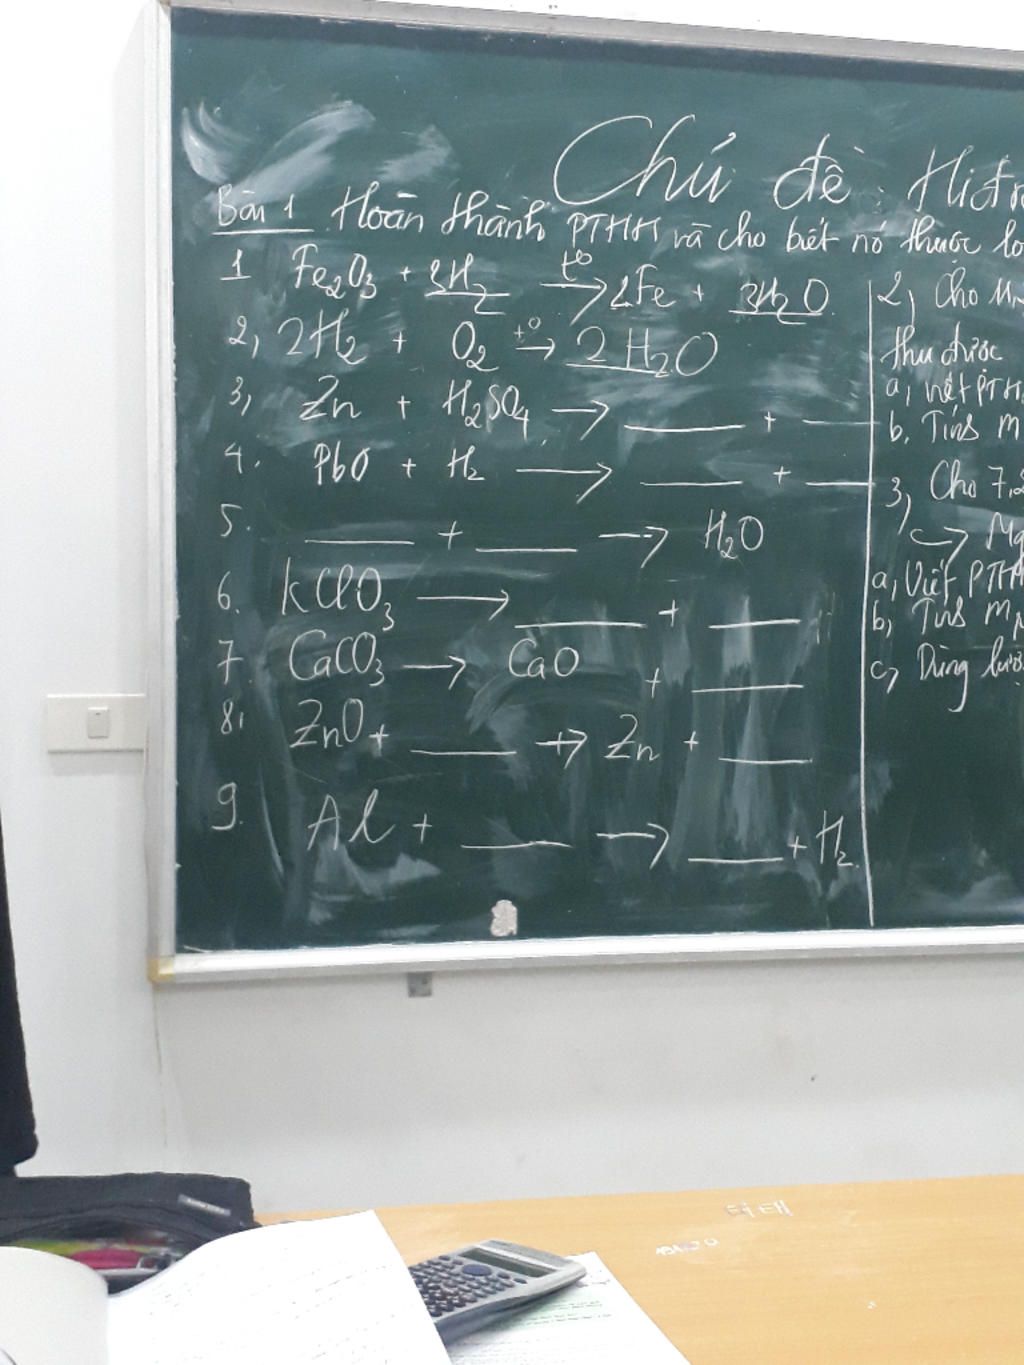 Chủ đề : Hiđr
Bài 1 Hoàn thành PTHH và cho biết nó thuộc lo
1 Fe2O3 + 3H2 t° → 2Fe + 3H2O
2, 2H2 + O2 t° → 2H2O
3, Zn + H2SO4 → ___ + ___
4. PbO + H2 → ___ + ___
5. ___ + ___ → H2O
6. KClO3 → ___ + ___
7 CaCO3 → CaO + ___
8, ZnO + ___ → Zn + ___
9. Al + ___ → ___ + H2
2, Cho
thu được
a, viết PTH
b. Tính m
3, Cho 7,2
→ Mg
a, Viết PTH
b, Tính m
c, Dùng lượ